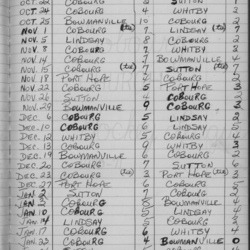 OCT. 22 COBOURG 2 SUTTON
OCT. 24 COBOURG 4 WHITBY 3
OCT. 25 BOWMANVILLE 10 COBOURG 2
NOV. 1 COBOURG (tie) 7 LINDSAY (tie) 7
NOV. 5 LINDSAY COBOURG
NOV. 8 COBOURG 7 WHITBY 3
NOV. 14 COBOURG BOWMANVILLE 4
NOV. 15 COBOURG (tie) 7 SUTTON (tie) 7
NOV. 18 PORT HOPE 4 COBOURG
NOV. 22 COBOURG 5 PORT HOPE 3
NOV. 26 SUTTON COBOURG
NOV. 28 BOWMANVILLE 9 COBOURG 3
DEC. 6 COBOURG 5 LINDSAY 2
DEC. 10 COBOURG 6 LINDSAY 5
DEC. 12 WHITBY 5 COBOURG
DEC. 13 COBOURG 9 WHITBY 3
DEC. 19 BOWMANVILLE 6 COBOURG
DEC. 20 COBOURG 6 SUTTON
DEC. 23 COBOURG (tie) 3 PORT HOPE (tie) 3
DEC. 27 PORT HOPE 6 COBOURG
JAN. 2 SUTTON 7 COBOURG 2
JAN. 3 COBOURG 8 BOWMANVILLE 4
JAN. 10 COBOURG 5 LINDSAY 4
JAN. 14 LINDSAY 5 COBOURG
JAN. 17 COBOURG 6 WHITBY 4
JAN. 23 COBOURG 4 BOWMANVILLE